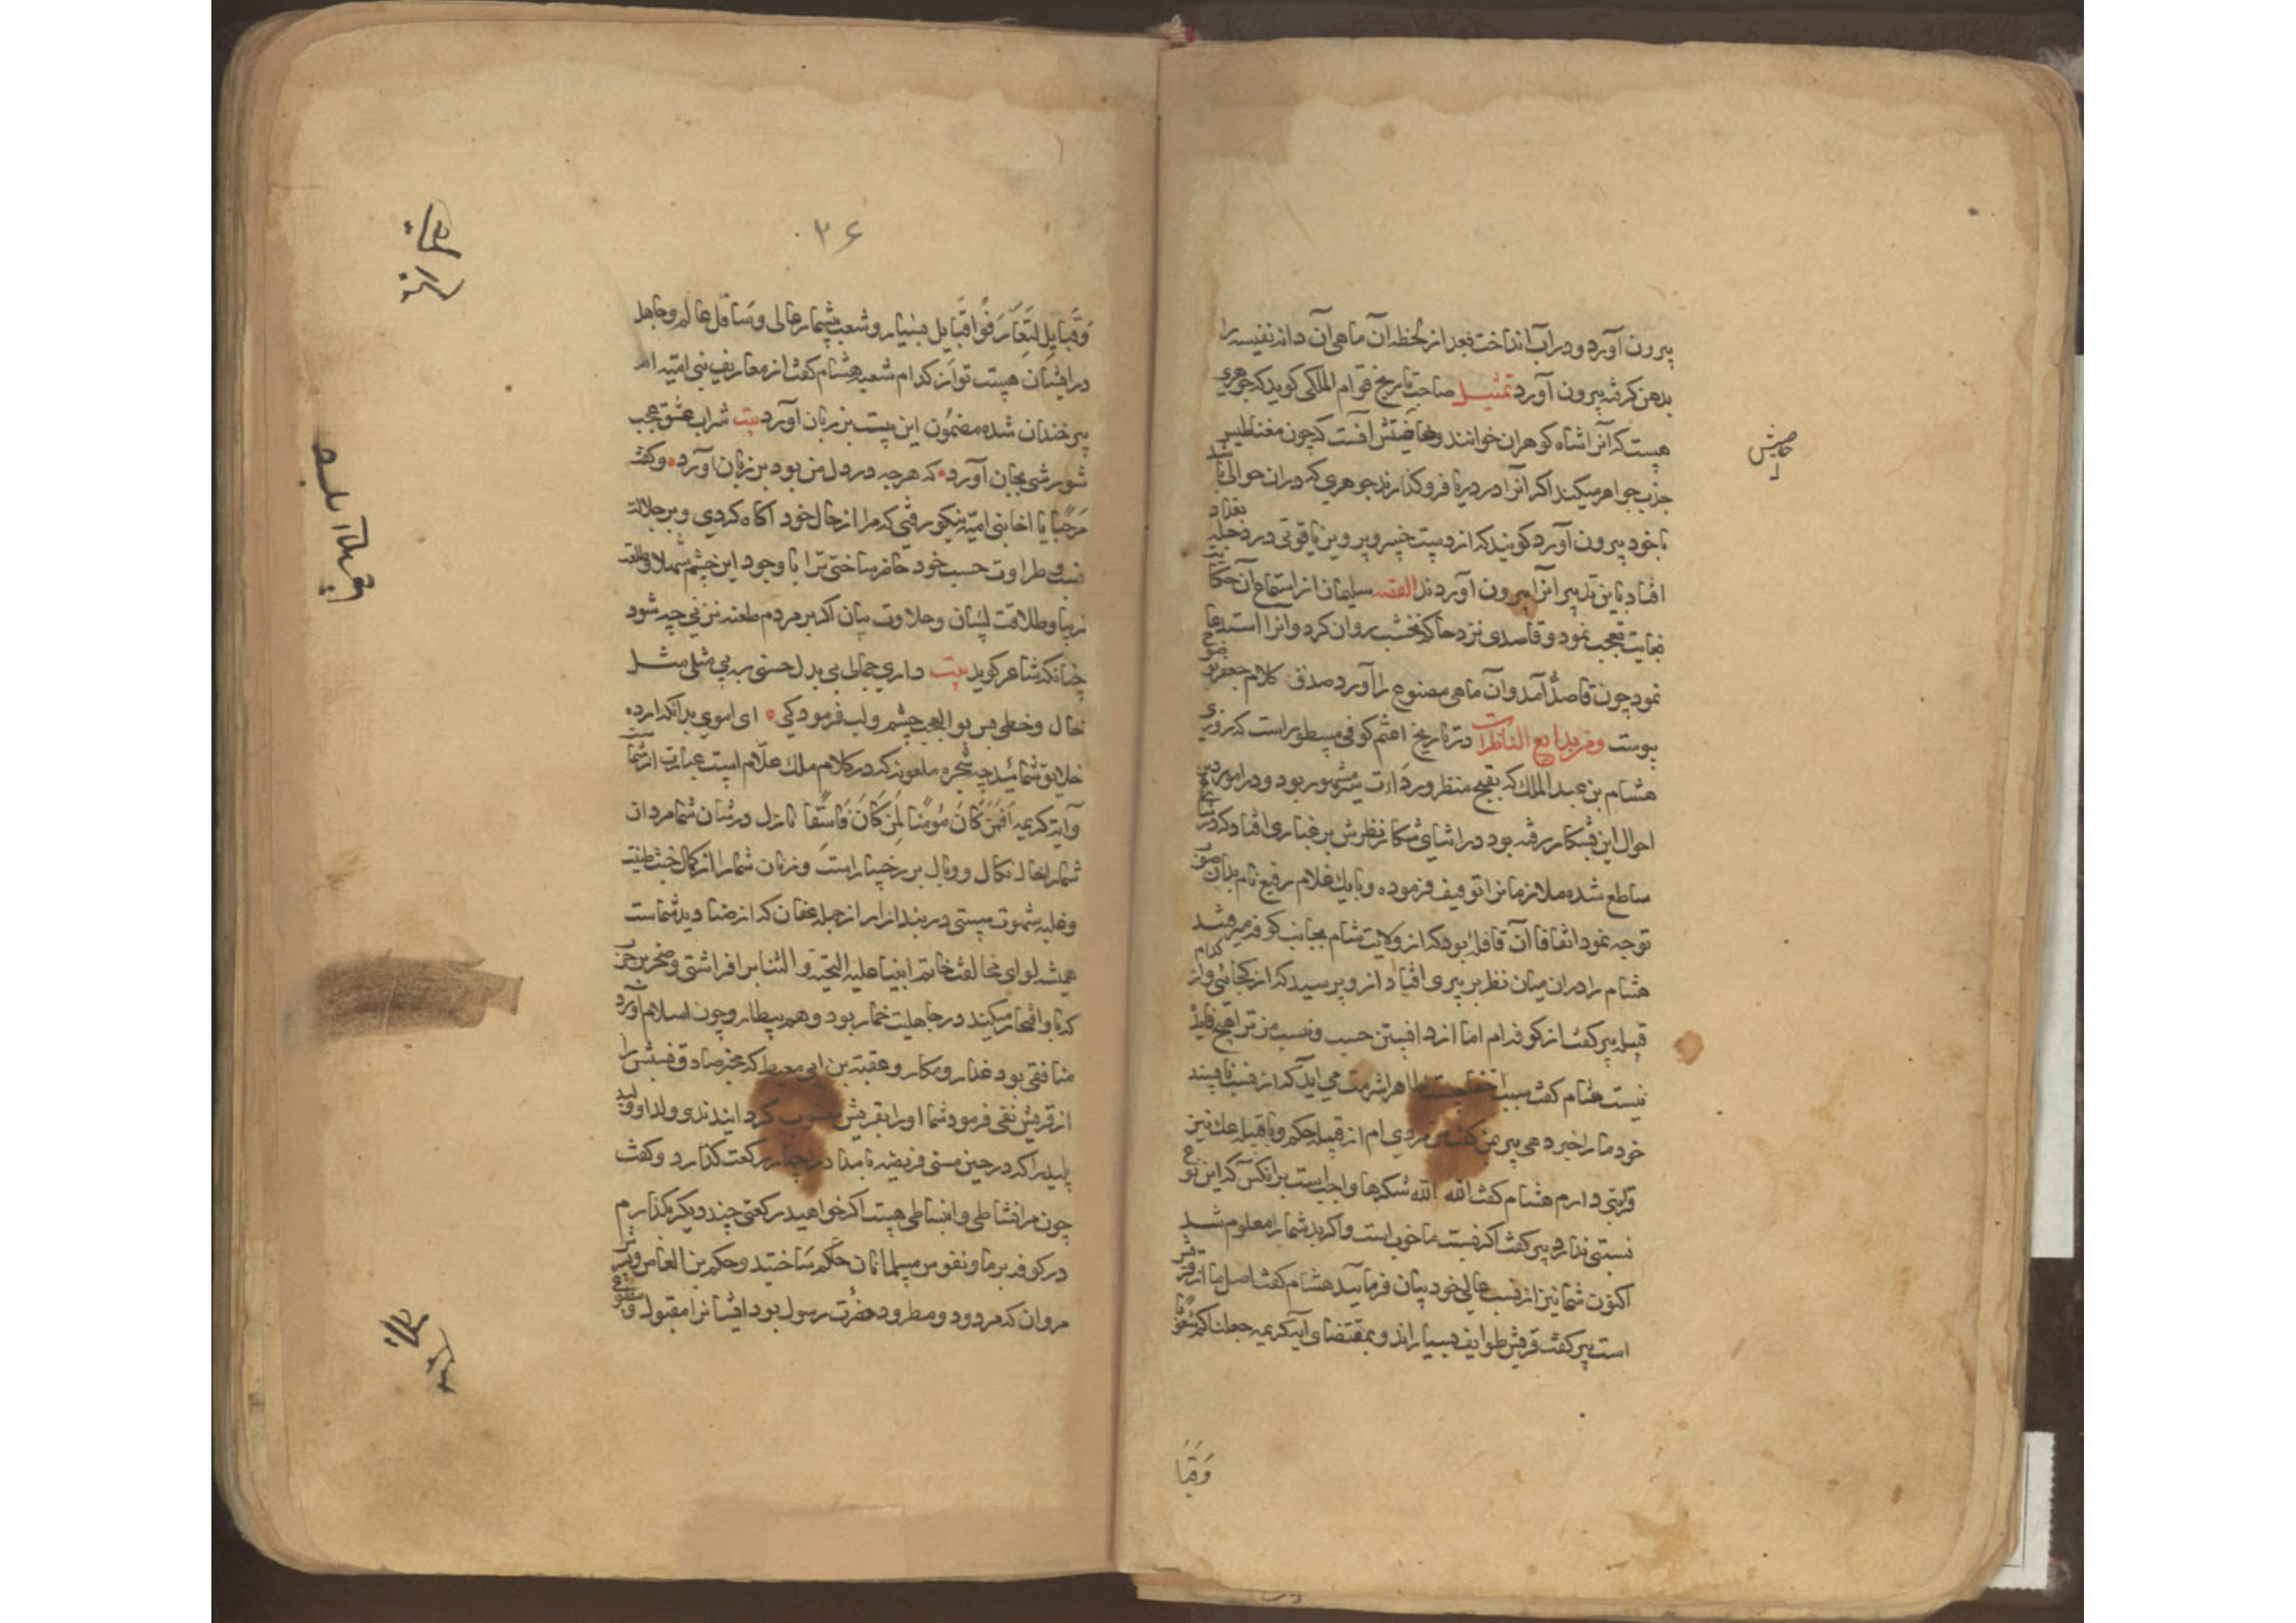 بیرون آورد و در آب انداخت بعد از لحظه آن ماهی آن دانه نفیسه را
بدهن کرفته بیرون آورد تمثیل صاحب تاریخ قوام الملکی کوید که جوهری
هست که آنرا شاه کوهران خوانند و خاصیتش آنست که چون مغناطیس
جذب جواهر میکند اکر آنرا در دریا فرو کذارند جوهری که دران حوالی باشد
با خود بیرون آورد کویند که از دست خسرو پرویز یاقوتی در دجله بغداد
افتاد باین تدبیر آنرا بیرون آوردند القصه سلیمان از استماع آن حکایت
بغایت تعجب نمود و قاصدی نزد حاکم نخشب روان کرد و آنرا استدعا
نمود چون قاصد آمد و آن ماهی مصنوع را آورد صدق کلام جعفر بوضوح
پیوست ومن بدایع الناظرات در تاریخ اعثم کوفی مسطور است که روزی
هشام بن عبد الملک که بقبح منظر و رداءت مشهور بود و در امور دین
احوال این بشکار رفته بود در اثنای شکار نظرش بر غباری افتاد که در
ساطع شده ملازمانرا توقیف فرموده و با یک غلام ربیع نام بدان صوب
توجه نمود اتفاقا آن قافله بود که از ولایت شام بجانب کوفه میرفتند
هشام را دران میان نظر بر پیری افتاد از و پرسید که از کجائی و از کدام
قبیله پیر کفت از کوفه ام اما از دانستن حسب و نسب من ترا هیچ فایده
نیست هشام کفت سبب ظاهرا شرمت می اید که از نسب ناپسند
خود مارا خبر دهی پیر کفت من مردی ام از قبیله حکم و با قبیله عک نیز
قرابتی دارم هشام کفت الله الله شکرها واجبست بر انکس که این نوع
نسبتی ندارد پیر کفت اکر نسبت ما خوبست و اکر بد شمارا معلوم شد
اکنون شما نیز از نسب عالی خود بیان فرمایید هشام کفت اصل ما از قریش
است پیر کفت قریش طوایف بسیارند و بمقتضای آیه کریمه جعلناکم شعوبا
وَقَبَا
۳۶
وَقَبایِلَ لِتَعَارَفُوا قبایل بسیار و شعب بیشمار عالی و سافل عالم و جاهل
در ایشان هست تو از کدام شعبه هشام کفت از معاریف بنی امیه ام
پیر خندان شده مضمون این بیت بر زبان آورد بیت شراب عشق عجب
شورشی بجان آورد که هرچه در دل من بود بر زبان آورد و کفت
مرحبا یا اخا بنی امیه نیکو رفتی که مرا از حال خود آکاه کردی و بر جلالت
نسب و طراوت حسب خود خافر ساختی ترا با وجود این چشم شهلا و طلعت
زیبا و طلاقت لسان و حلاوت بیان اکر بر مردم طعنه نزنی چه شود
چنانکه شاعر کوید بیت داری جمالی بی بدل حسنی به بی مثلی مثل
خال و خطی بس بو العجب چشم و لب فرمودکی ای اموی بدانکه ارذه
خلایق شمائید چه شجره ملعونه که در کلام ملک علّام است عبارت از شماست
و آیه کریمه اَفَمَن كَانَ مُؤمِنًا كَمَن كَانَ فَاسِقًا نازل در شان شما مردان
شمارا خال نکال و وبال بر رخسار است و زنان شمارا از کمال خبث طینت
و غلبه شهوت سستی در بند ازار از جمله عفان که از صنادید شماست
همیشه لوای مخالفت خاتم انبیا علیه التحیة و الثنا بر افراشتی و صخر بن حرب
که باو افتخار میکنید در جاهلیت خمار بود و هم بیطار و چون اسلام آورد
منافقی بود غدار و مکار و عقبة بن ابی معیط که مخبر صادق نسبش را
از قریش نفی فرمود شما اورا بقریش منسوب کردانیدید و ولد او ولید
پلید را که در حین مستی فریضه بامداد را چهار رکعت کذارد و کفت
چون مرا نشاطی و انبساطی هست اکر خواهید رکعتی چند دیکر بکذارم
در کوفه بر دما و نفوس مسلمانان حکم ساختید و حکم بن العاص و پسر
مروان که مردود و مطرود حضرت رسول بود ایشانرا مقبول و